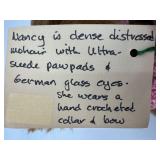 Nancy is dense distressed
mohair with Ultra-
suede pawpads &
German glass eyes -
she wears a
hand crocheted
collar & bow